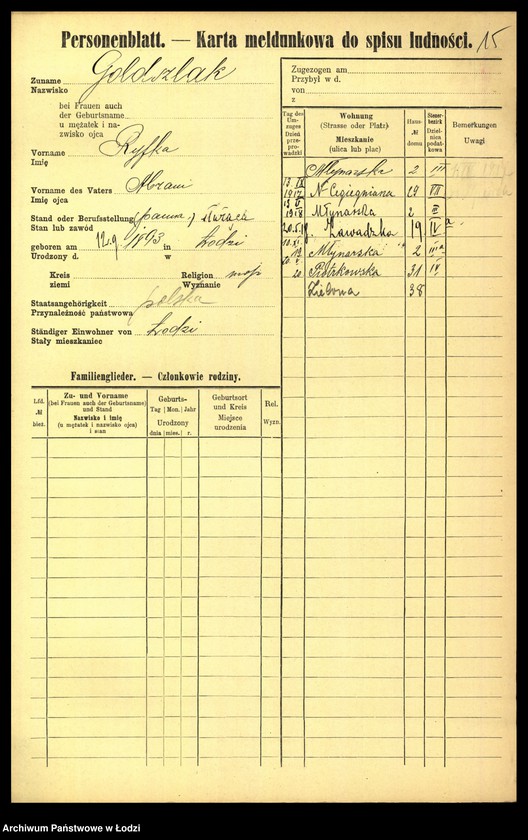 Personenblatt. — Karta meldunkowa do spisu ludności. 15
Zuname Goldszlak
Nazwisko
bei Frauen auch
der Geburtsname
u mężatek i na-
zwisko ojca
Vorname Ryfka
Imię
Vorname des Vaters Abram
Imię ojca
Stand oder Berufsstellung (panna)
Stan lub zawód
geboren am 12.9 1893 in Łodzi
Urodzony d. w
Kreis Religion mojż
ziemi Wyznanie
Staatsangehörigkeit polska
Przynależność państwowa
Ständiger Einwohner von Łodzi
Stały mieszkaniec
Familienglieder. — Członkowie rodziny.
Lfd. № bież.
Zu- und Vorname
(bei Frauen auch der Geburtsname)
und Stand
Nazwisko i imię
(u mężatek i nazwisko ojca)
i stan
Geburts-
Tag Mon. Jahr
Urodzony
dnia miec. r.
Geburtsort
und Kreis
Miejsce
urodzenia
Rel.
Wyzn.
Zugezogen am
Przybył w d.
von
z
Tag des Um-zuges
Dzień prze-pro-wadzki
Wohnung
(Strasse oder Platz)
Mieszkanie
(ulica lub plac)
Haus-
№
domu
Steuer-bezirk
Dziel-nica
podat-kowa
Bemerkungen
Uwagi
Młynarska 2 III
N-Cegielniana 29 VII
1918 Młynarska 2 II
Zawadzka 19 IV a
Młynarska 2 III a
20 Piotrkowska 31 IV
Zielona 38
Archiwum Państwowe w Łodzi